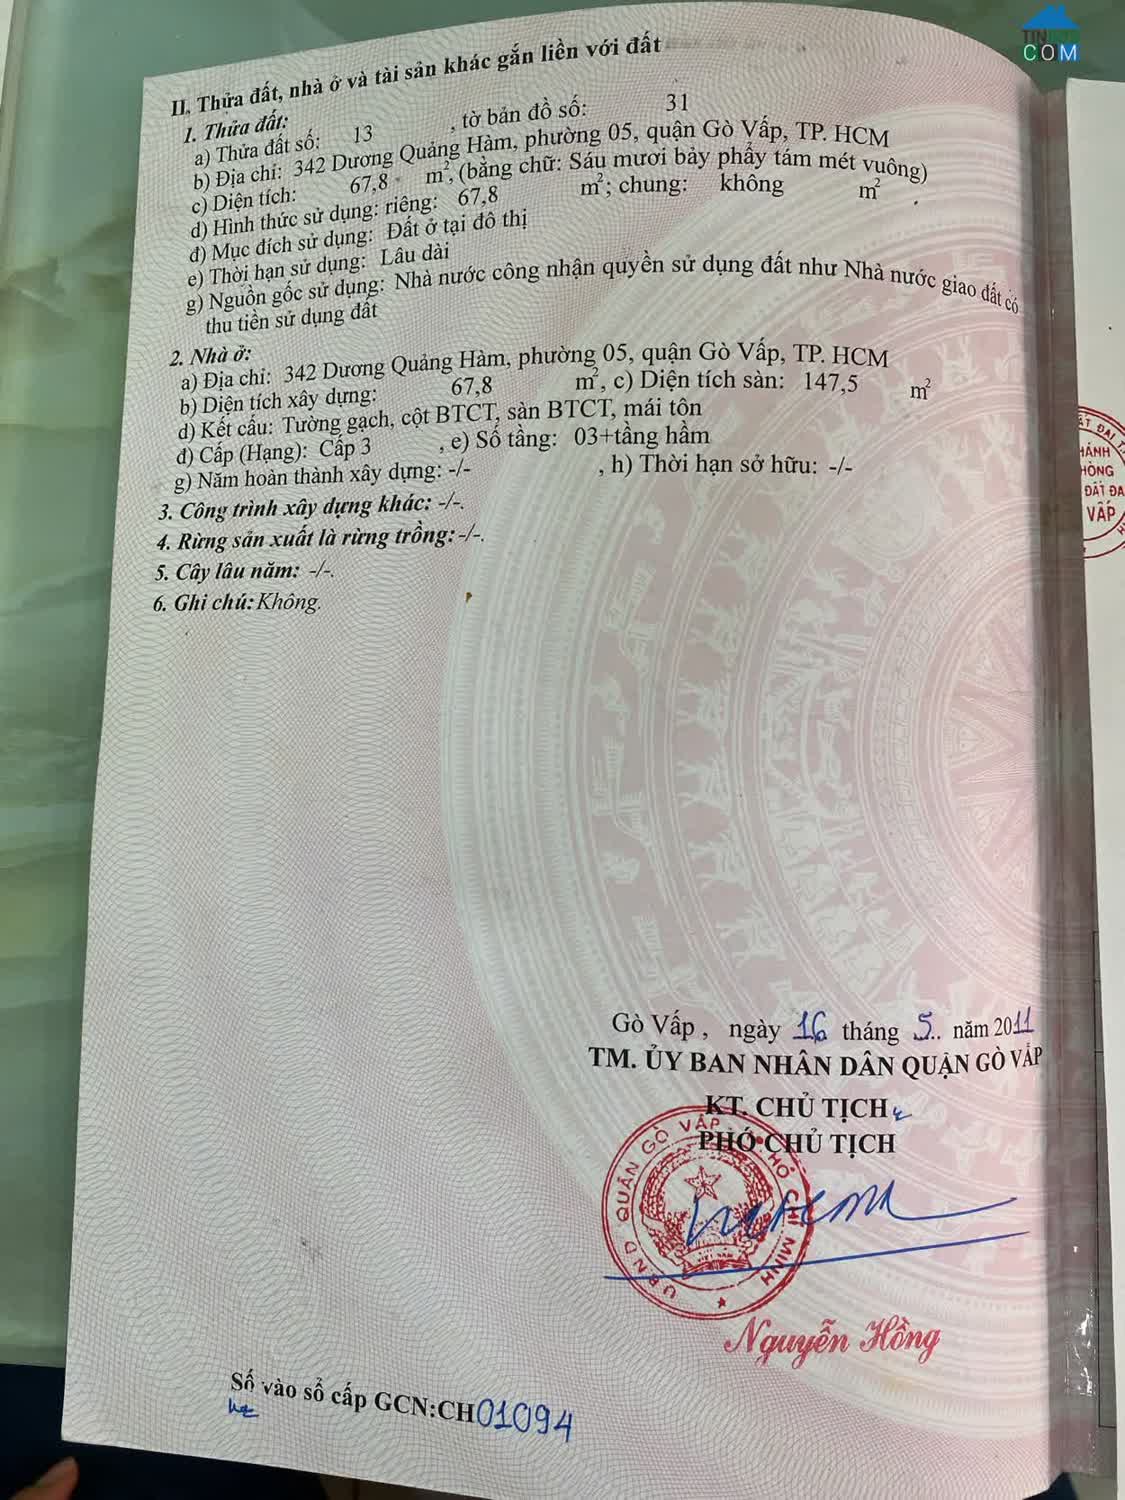 TIN
COM
II. Thửa đất, nhà ở và tài sản khác gắn liền với đất
1. Thửa đất:
a) Thửa đất số: 13 , tờ bản đồ số: 31
b) Địa chỉ: 342 Dương Quảng Hàm, phường 05, quận Gò Vấp, TP. HCM
c) Diện tích: 67,8 m², (bằng chữ: Sáu mươi bảy phẩy tám mét vuông)
d) Hình thức sử dụng: riêng: 67,8 m²; chung: không m²
đ) Mục đích sử dụng: Đất ở tại đô thị
e) Thời hạn sử dụng: Lâu dài
g) Nguồn gốc sử dụng: Nhà nước công nhận quyền sử dụng đất như Nhà nước giao đất có
thu tiền sử dụng đất
2. Nhà ở:
a) Địa chỉ: 342 Dương Quảng Hàm, phường 05, quận Gò Vấp, TP. HCM
b) Diện tích xây dựng: 67,8 m², c) Diện tích sàn: 147,5 m²
d) Kết cấu: Tường gạch, cột BTCT, sàn BTCT, mái tôn
đ) Cấp (Hạng): Cấp 3 , e) Số tầng: 03+tầng hầm
g) Năm hoàn thành xây dựng: -/- , h) Thời hạn sở hữu: -/-
3. Công trình xây dựng khác: -/-.
4. Rừng sản xuất là rừng trồng: -/-.
5. Cây lâu năm: -/-.
6. Ghi chú: Không.
Gò Vấp , ngày 16 tháng 5.. năm 2011
TM. ỦY BAN NHÂN DÂN QUẬN GÒ VẤP
KT. CHỦ TỊCH
PHÓ CHỦ TỊCH
UBND QUẬN GÒ VẤP HỒ CHÍ MINH
Nguyễn Hồng
Số vào sổ cấp GCN:CH01094
ẤT ĐAI
HÁNH
HÒNG
ĐẤT ĐA
VẤP